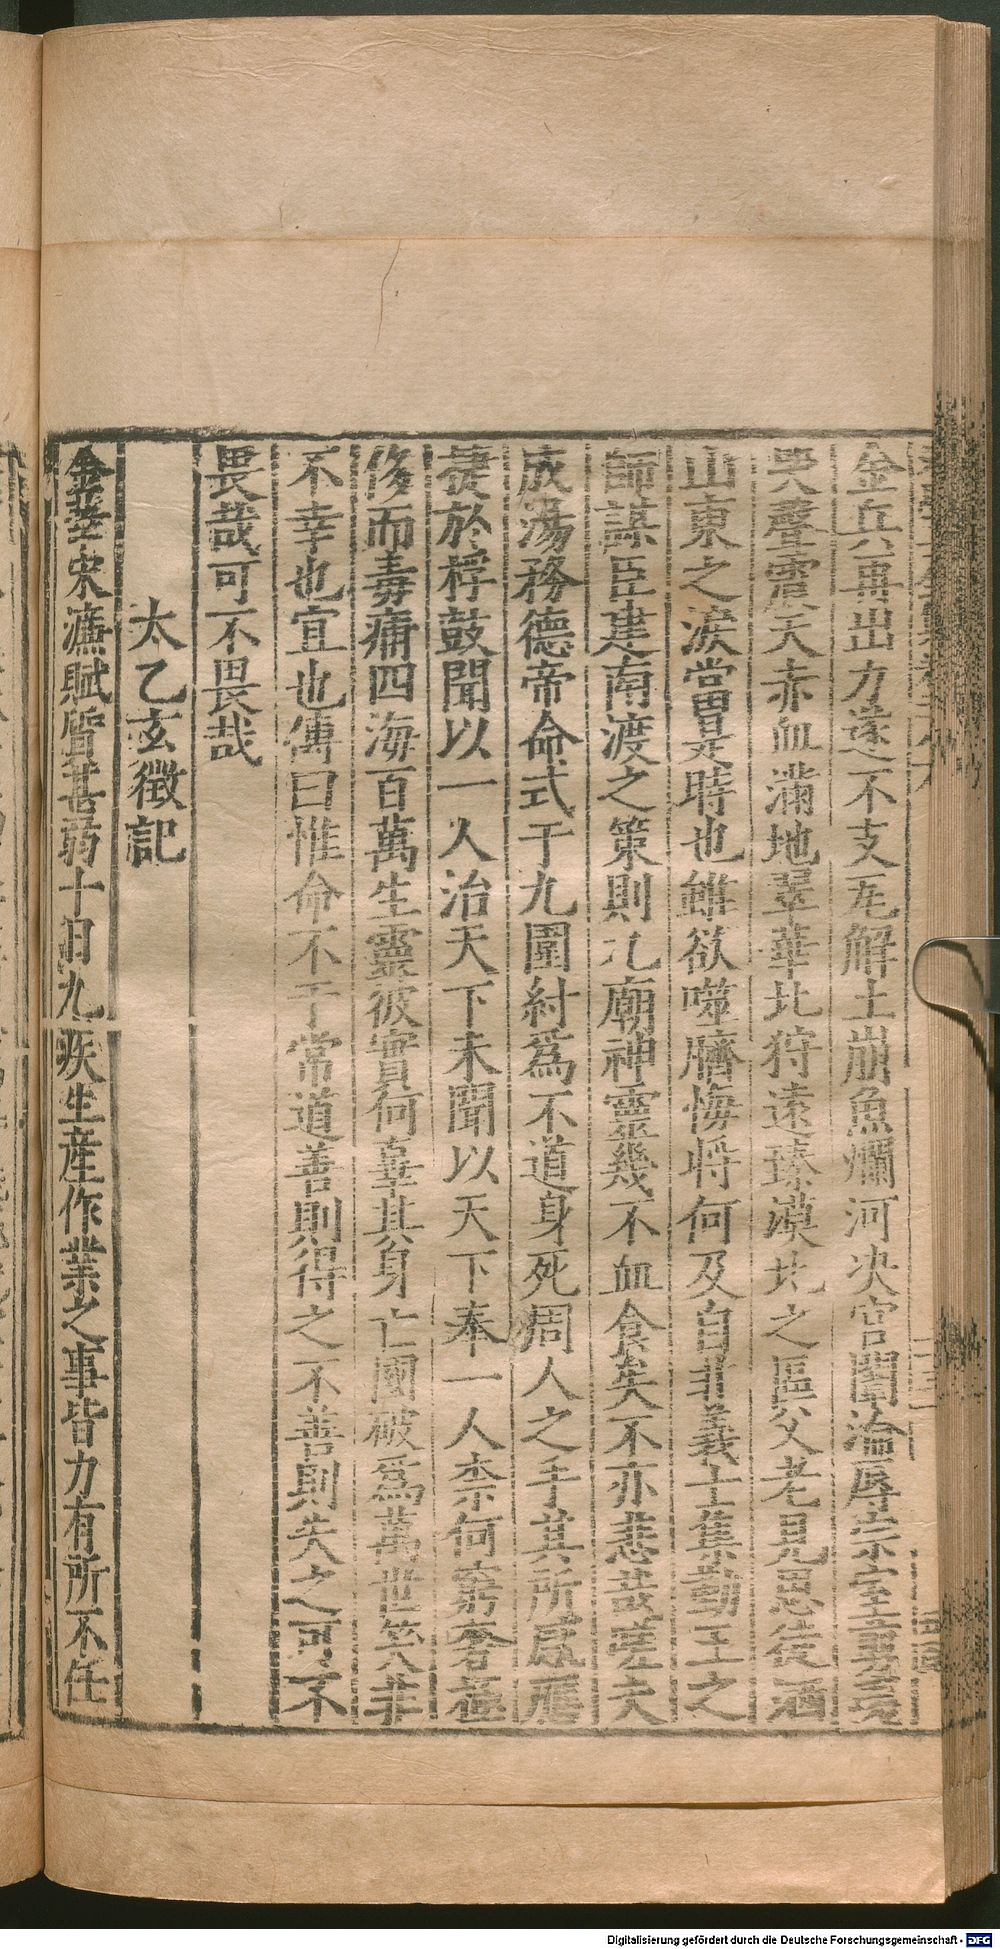 金兵再出力遂不支瓦解土崩魚爛河决宮闈淪辱宗室蒙
哭聲震天赤血滿地翠華北狩遠臻漠北之區父老見思徒洒
山東之淚當是時也雖欲噬臍悔將何及自非義士集勤王之
師謀臣建南渡之策則九廟神靈幾不血食矣不亦悲哉嗟夫
成湯務德帝命式于九圍紂爲不道身死周人之手其所感應
捷於桴鼓聞以一人治天下未聞以天下奉一人柰何窮奢極
侈而毒痡四海百萬生靈彼實何辜其身亡國破爲萬世笑非
不幸也宜也傳曰惟命不于常道善則得之不善則失之可不
畏哉可不畏哉
太乙玄徵記
金華宋濂賦質甚弱十日九疾生産作業之事皆力有所不任
Digitalisierung gefördert durch die Deutsche Forschungsgemeinschaft - DFG